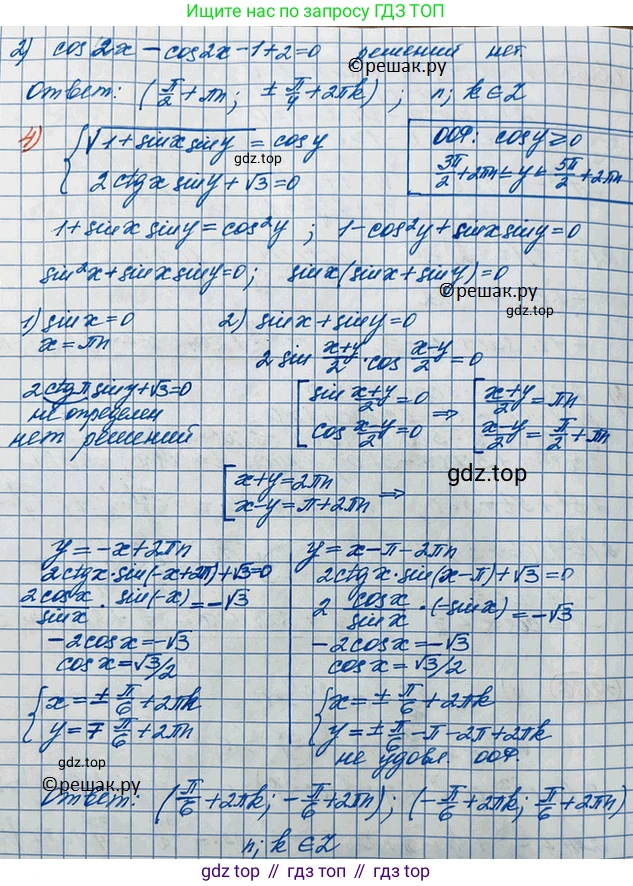 Ищите нас по запросу ГДЗ ТОП
2) cos2x - cos2x - 1 + 2 = 0 решений нет.
©решак.ру
Ответ: (π/2 + πn; ± π/4 + 2πk); n; k ∈ Z
4) { √(1 + sinx siny) = cosy
2ctgx siny + √3 = 0
gdz.top
ООФ: cosy ≥ 0
3π/2 + 2πn ≤ y ≤ 5π/2 + 2πn
1 + sinx siny = cos²y; 1 - cos²y + sinx siny = 0
sin²x + sinx siny = 0; sinx(sinx + siny) = 0
©решак.ру
1) sinx = 0 2) sinx + siny = 0
x = πn 2 sin (x+y)/2 · cos (x-y)/2 = 0
2ctgπ siny + √3 = 0
не определен
нет решений
[ sin (x+y)/2 = 0 ⇒ [ (x+y)/2 = πn
cos (x-y)/2 = 0 (x-y)/2 = π/2 + πn
gdz.top
[ x+y = 2πn
x-y = π + 2πn ⇒
y = -x + 2πn
2ctgx·sin(-x+2π) + √3 = 0
2cosx/sinx · sin(-x) = -√3
-2cosx = -√3
cosx = √3/2
{ x = ± π/6 + 2πk
y = ∓ π/6 + 2πn
gdz.top
y = x - π - 2πn
2ctgx·sin(x-π) + √3 = 0
2 cosx/sinx · (-sinx) = -√3
-2cosx = -√3
cosx = √3/2
{ x = ± π/6 + 2πk
y = ± π/6 - π - 2π + 2πk
не удовл. ООФ.
©решак.ру
©решак.ру
Ответ: (π/6 + 2πk; -π/6 + 2πn); (-π/6 + 2πk; π/6 + 2πn)
n; k ∈ Z
gdz.top // gdz.top // gdz.top // gdz.top